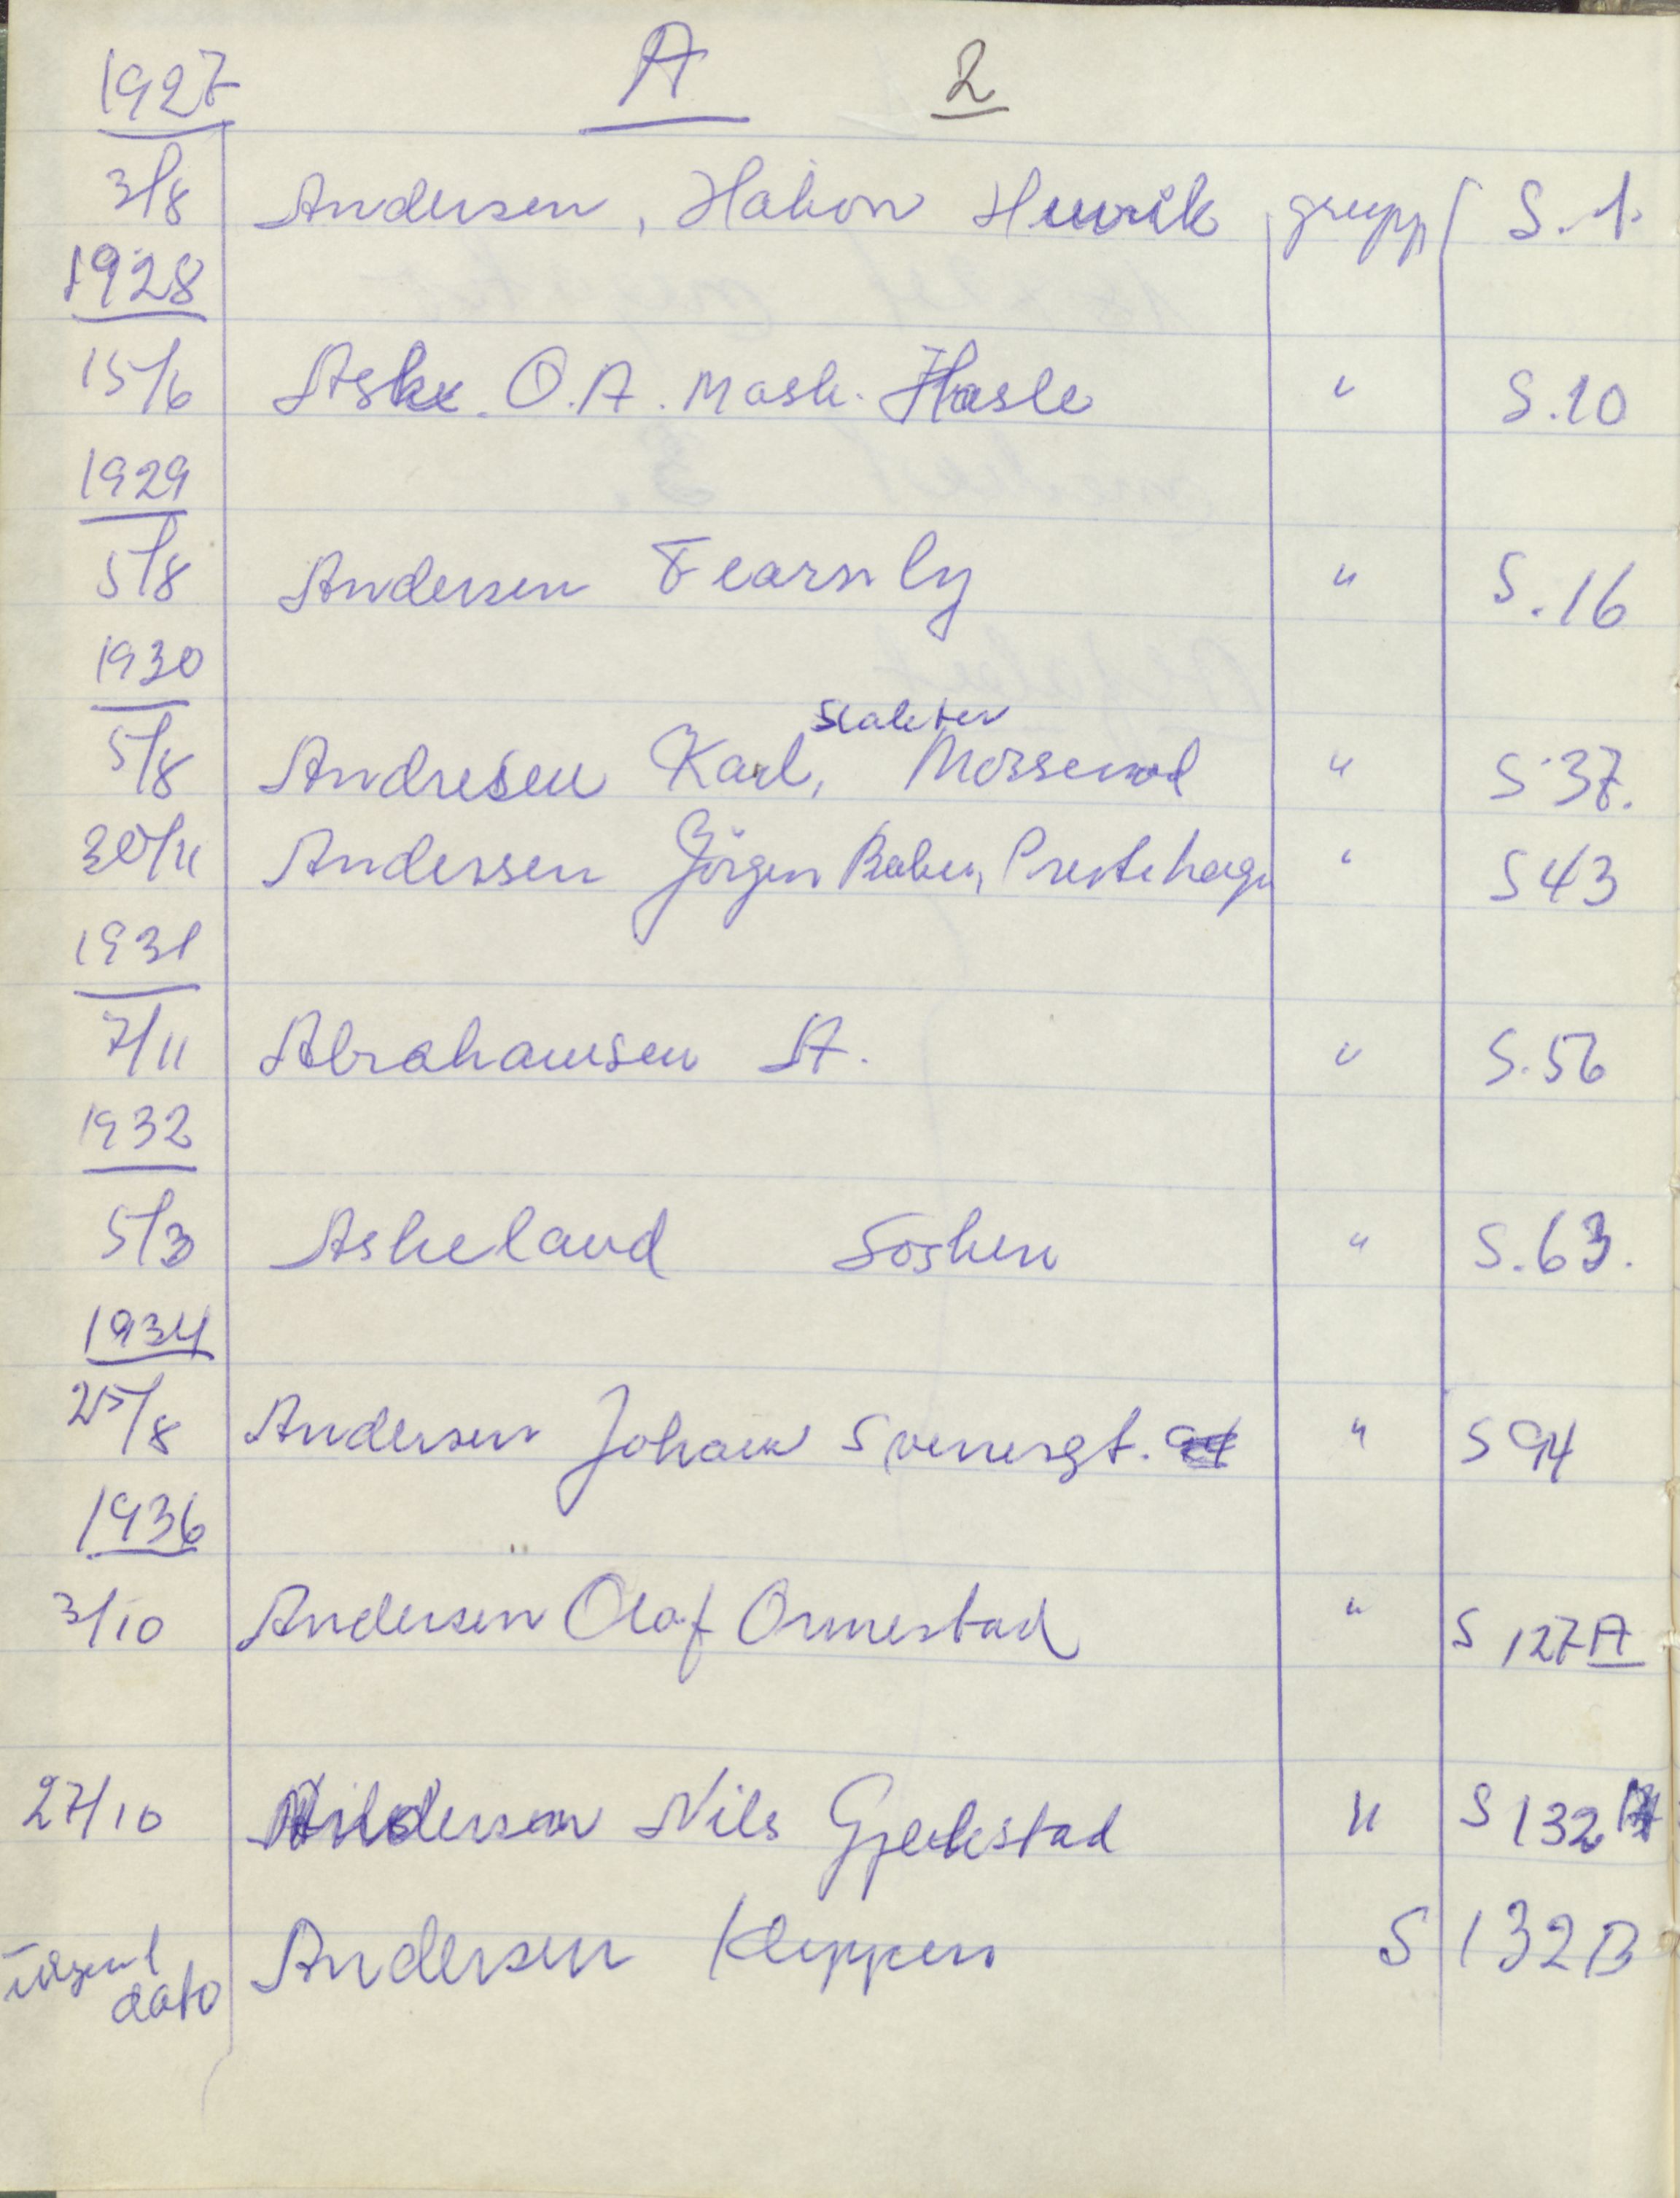 1927 A 2
3/8 Andersen, Hakon Henrik grupp S. 1.
1928
15/6 Aske. O. A. Mask. Hasle " S. 10
1929
5/8 Andersen Fearnly " S. 16
1930
5/8 Andresen Karl, Slakter " S 37.
30/11 Anderssen Jörgen Prestehagn " S 43
1931
7/11 Abrahamsen A. " S. 56
1932
5/3 Askeland Sosken " S. 63.
1934
25/8 Andersen Johan Svenesgt. " S 94
1936
3/10 Andersen Olaf Ormestad " S 127 A
27/10 Andersen Nils Gjekstad " S 132 A
Andersen Kleppen S 132 B
dato